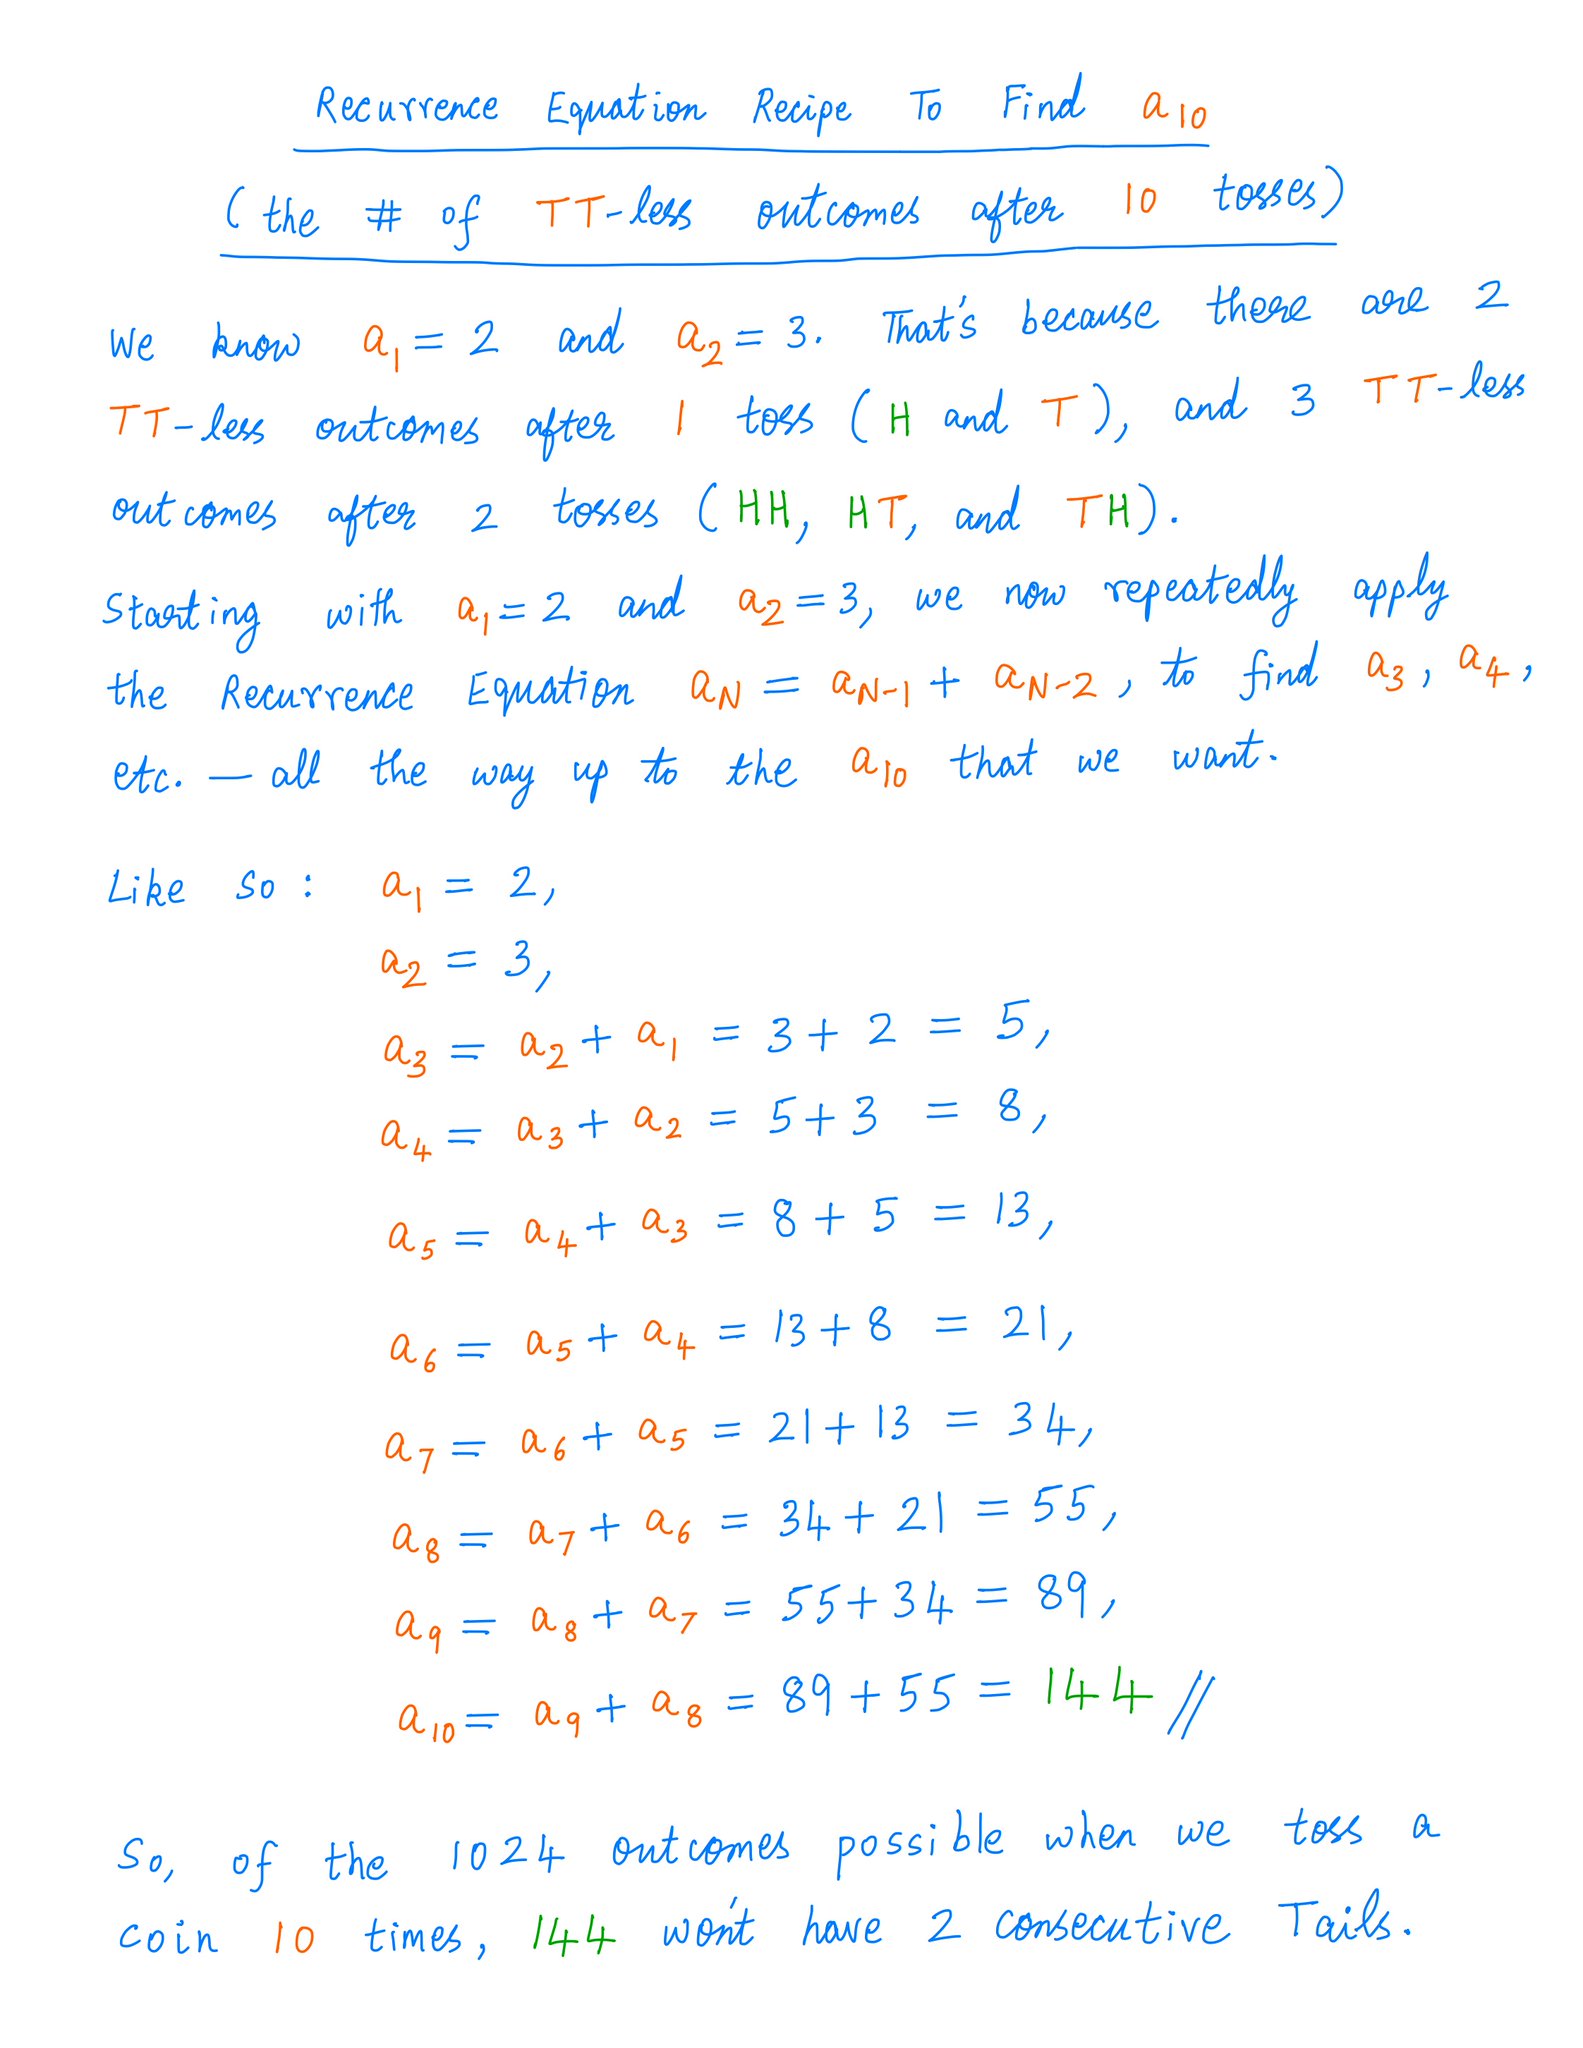 Recurrence Equation Recipe To Find a₁₀
(the # of TT-less outcomes after 10 tosses)
We know a₁ = 2 and a₂ = 3. That's because there are 2
TT-less outcomes after 1 toss (H and T), and 3 TT-less
outcomes after 2 tosses (HH, HT, and TH).
Starting with a₁ = 2 and a₂ = 3, we now repeatedly apply
the Recurrence Equation a_N = a_N-1 + a_N-2, to find a₃, a₄,
etc. — all the way up to the a₁₀ that we want.
Like so: a₁ = 2,
a₂ = 3,
a₃ = a₂ + a₁ = 3 + 2 = 5,
a₄ = a₃ + a₂ = 5 + 3 = 8,
a₅ = a₄ + a₃ = 8 + 5 = 13,
a₆ = a₅ + a₄ = 13 + 8 = 21,
a₇ = a₆ + a₅ = 21 + 13 = 34,
a₈ = a₇ + a₆ = 34 + 21 = 55,
a₉ = a₈ + a₇ = 55 + 34 = 89,
a₁₀ = a₉ + a₈ = 89 + 55 = 144 //
So, of the 1024 outcomes possible when we toss a
coin 10 times, 144 won't have 2 consecutive Tails.